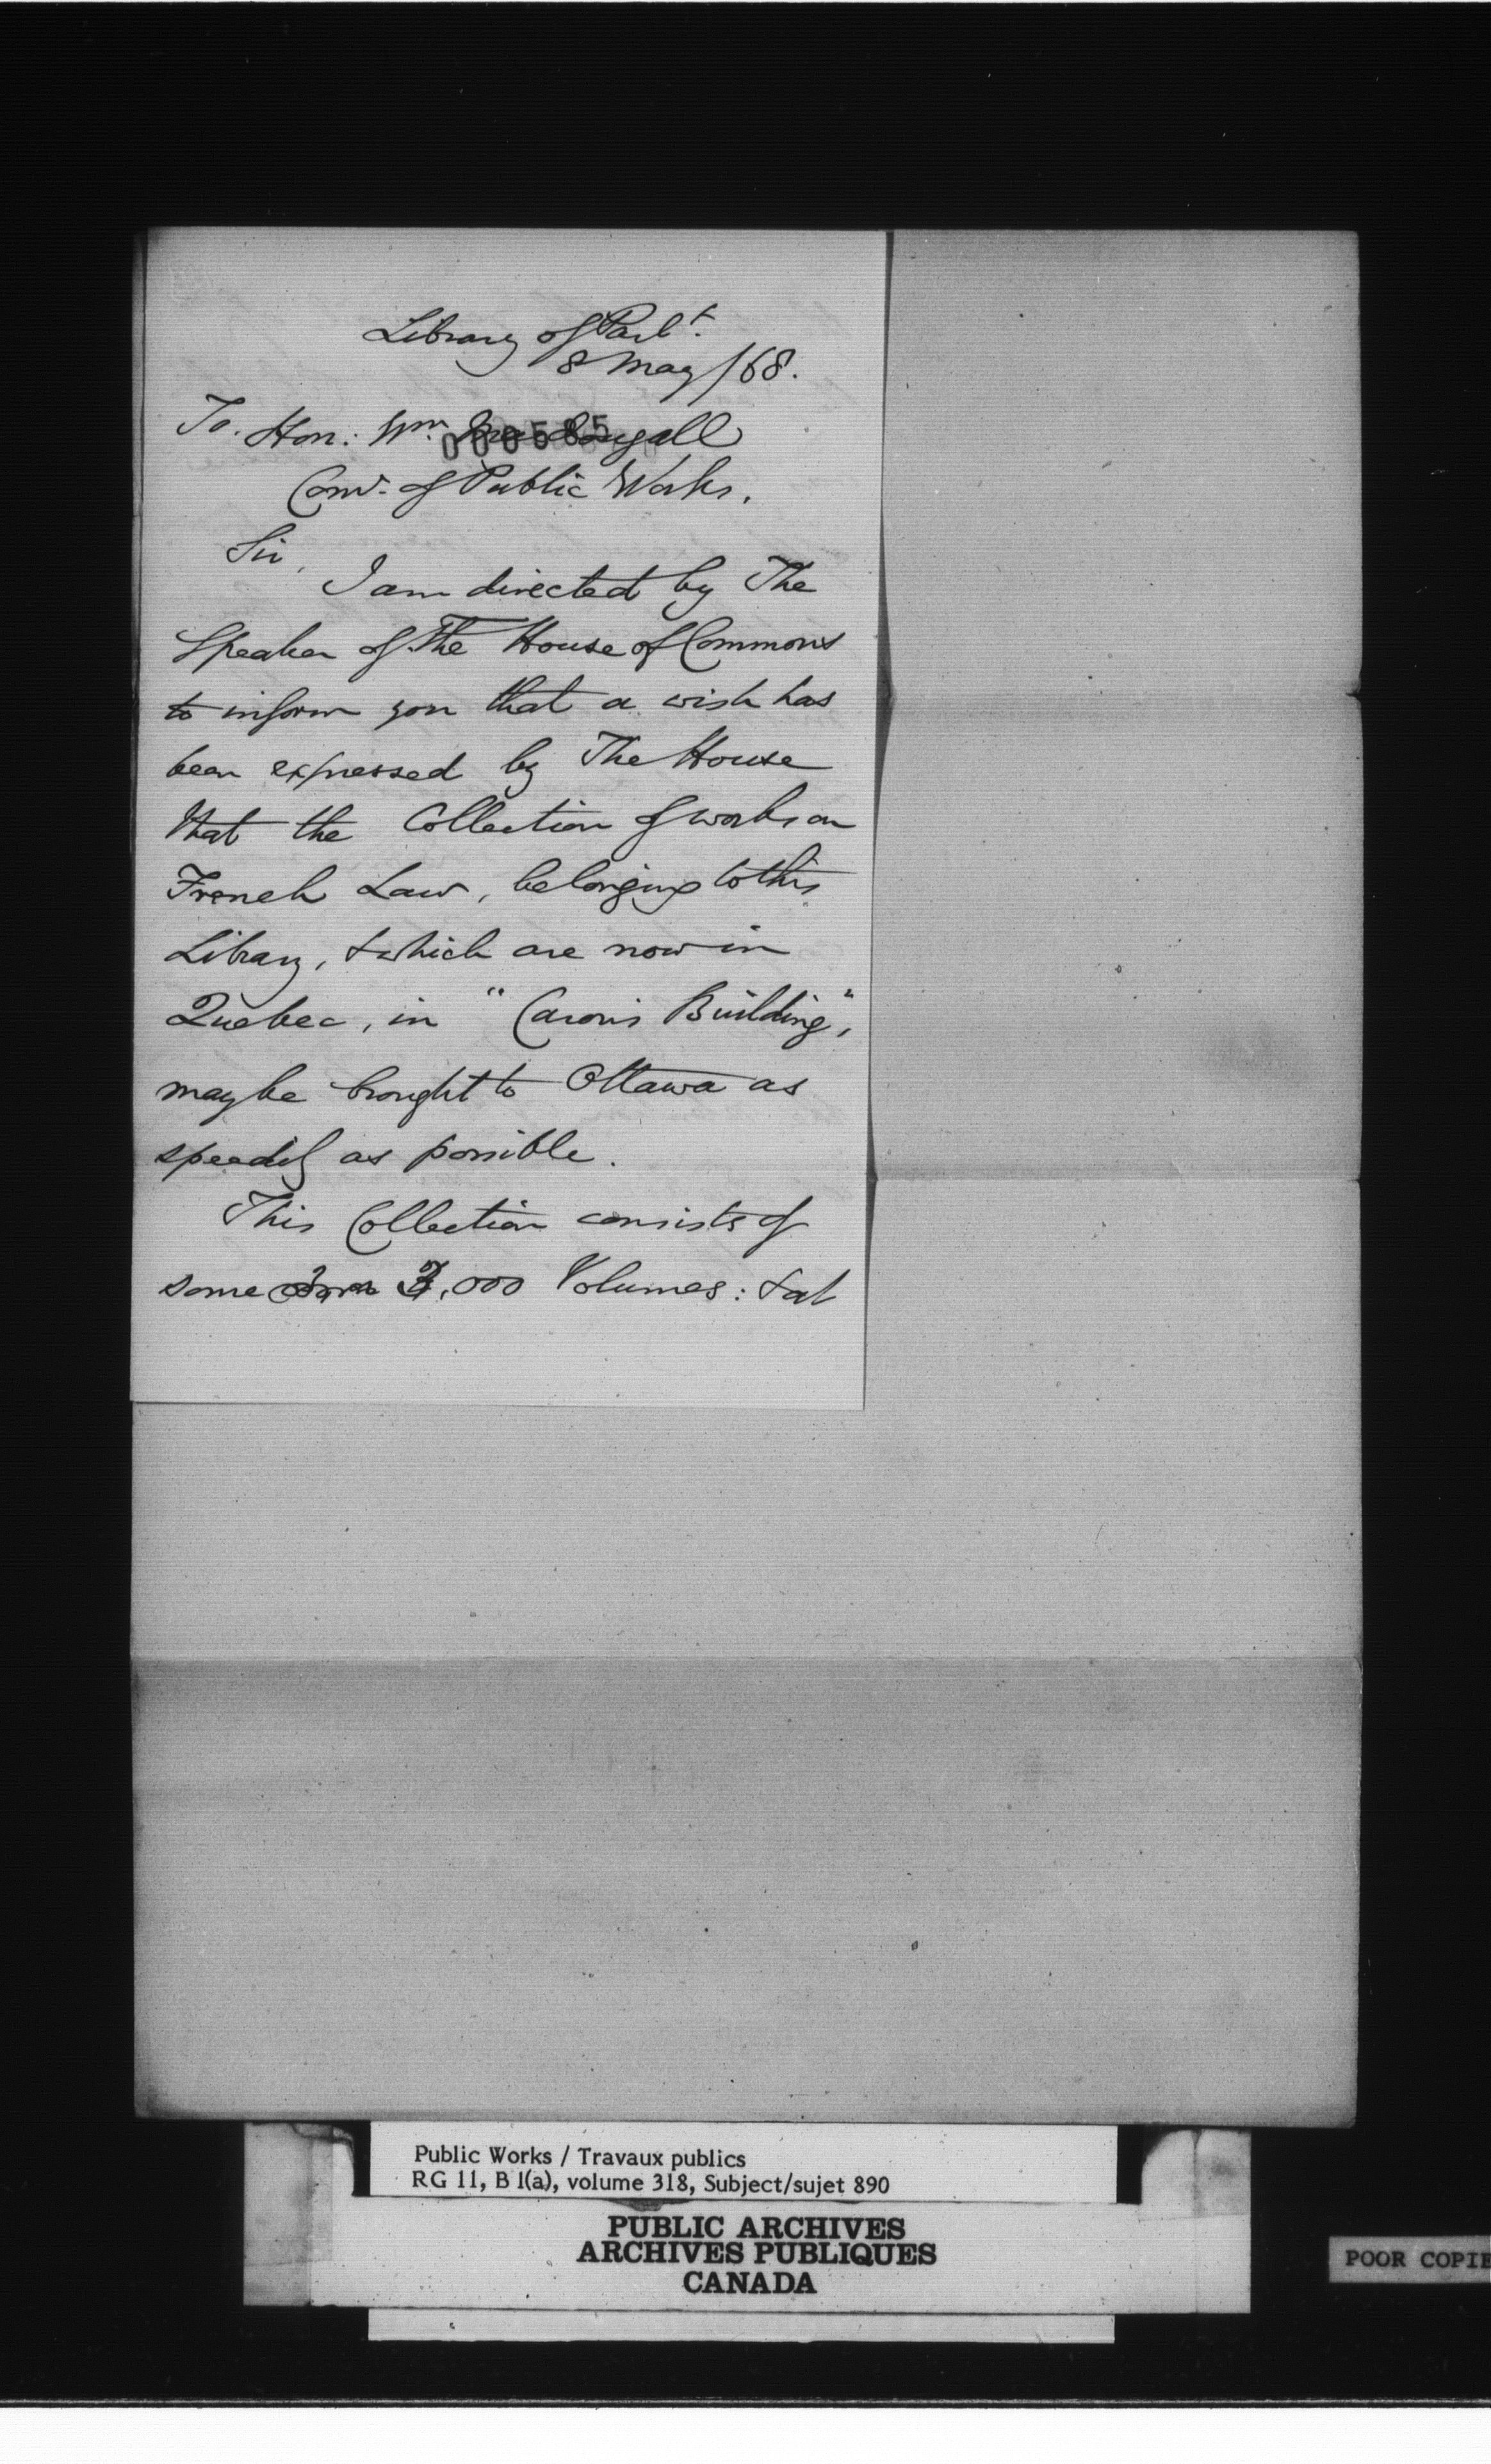 Library of Parlt.
8 May /68.
To. Hon: Wm. MacDougall
000585
Comr. of Public Works.
Sir,
I am directed by The
Speaker of The House of Commons
to inform you that a wish has
been expressed by The House
that the Collection of works on
French Law, belonging to this
Library, & which are now in
Quebec, in "Caron's Building",
may be brought to Ottawa as
speedily as possible.
This Collection consists of
some ,000 Volumes: & at
Public Works / Travaux publics
RG 11, B 1(a), volume 318, Subject/sujet 890
PUBLIC ARCHIVES
ARCHIVES PUBLIQUES
CANADA
POOR COPIE